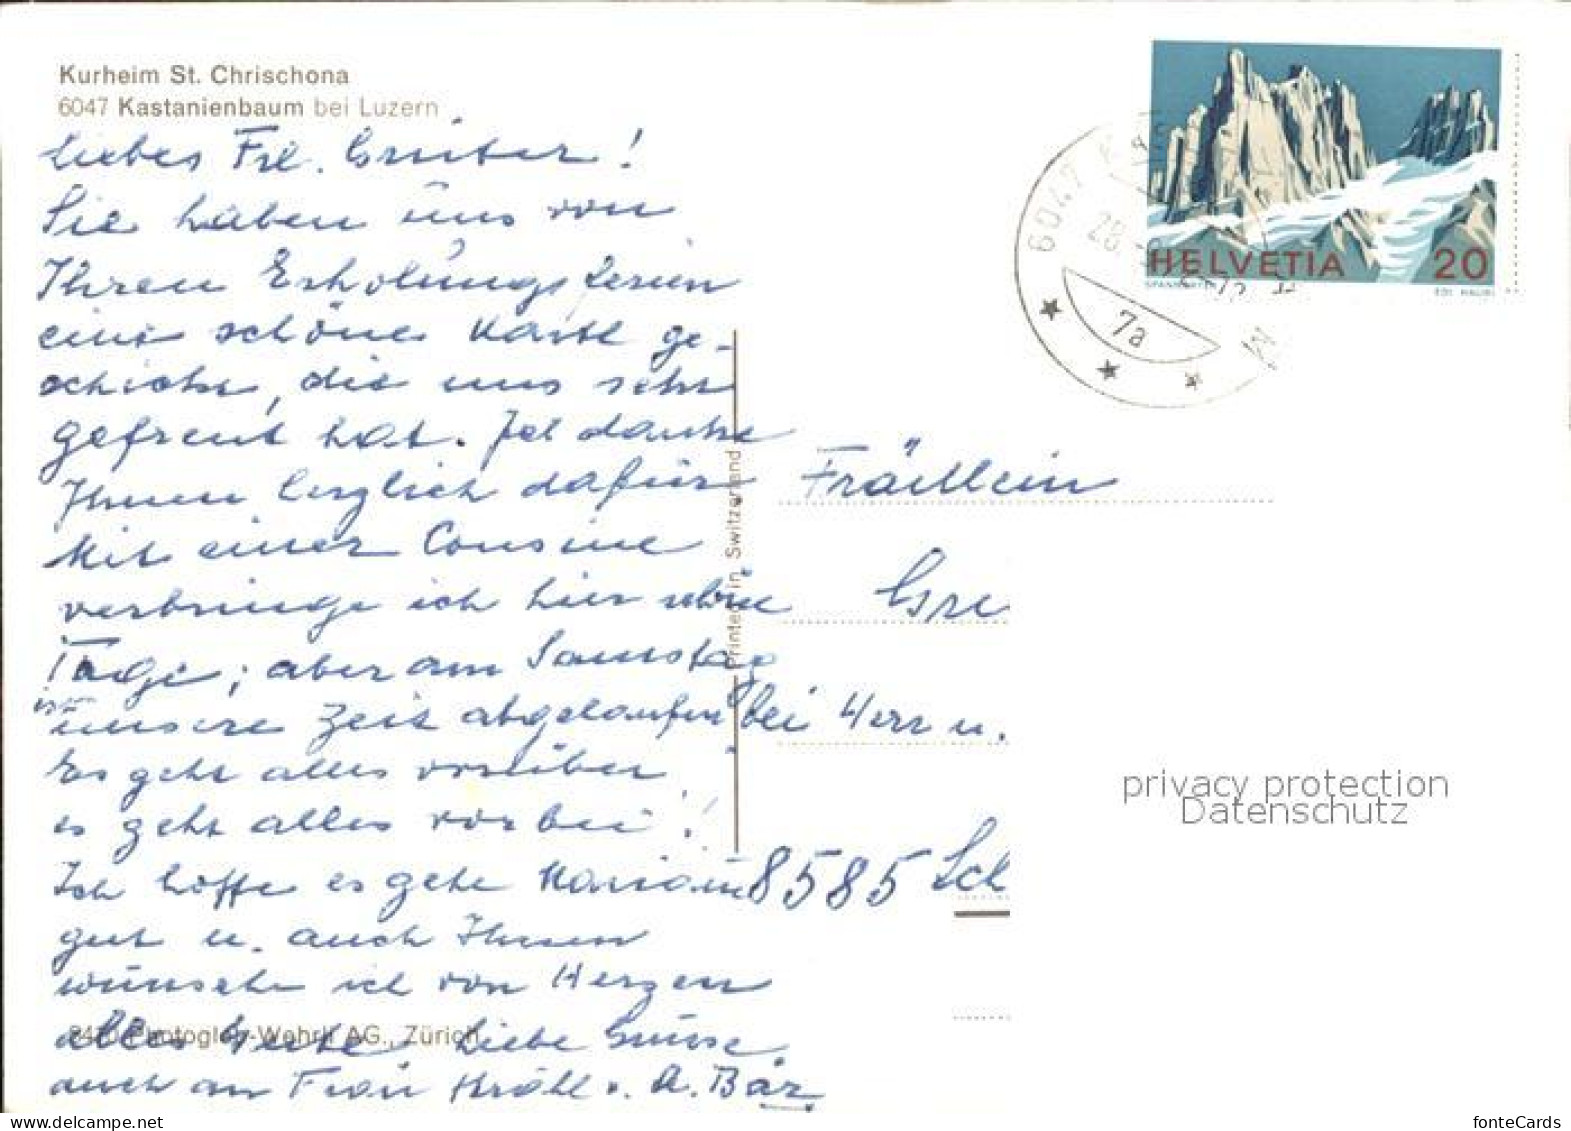 Kurheim St. Chrischona
6047 Kastanienbaum bei Luzern
Liebes Frl. Grüter!
Sie haben uns von
Ihren Erholungsferien
eine schöne Karte ge-
schickt, die uns sehr
gefreut hat. Ich danke
Ihnen herzlich dafür
Mit einer Cousine
verbringe ich hier schöne
Tage; aber am Samstag
ist
unsere Zeit abgelaufen
Es geht alles vorüber
es geht alles vorbei!
Ich hoffe es gehe
gut u. auch Ihnen
wünsche ich von Herzen
alles Gute Liebe Grüsse
auch an Frau Krähl v. A. Bär
Photoglob-Wehrli AG., Zürich
Printed in Switzerland
HELVETIA 20
6047
28.
7a
Fräullein
Gre
bei Herr u.
8585 Sch
privacy protection
Datenschutz
fonteCards